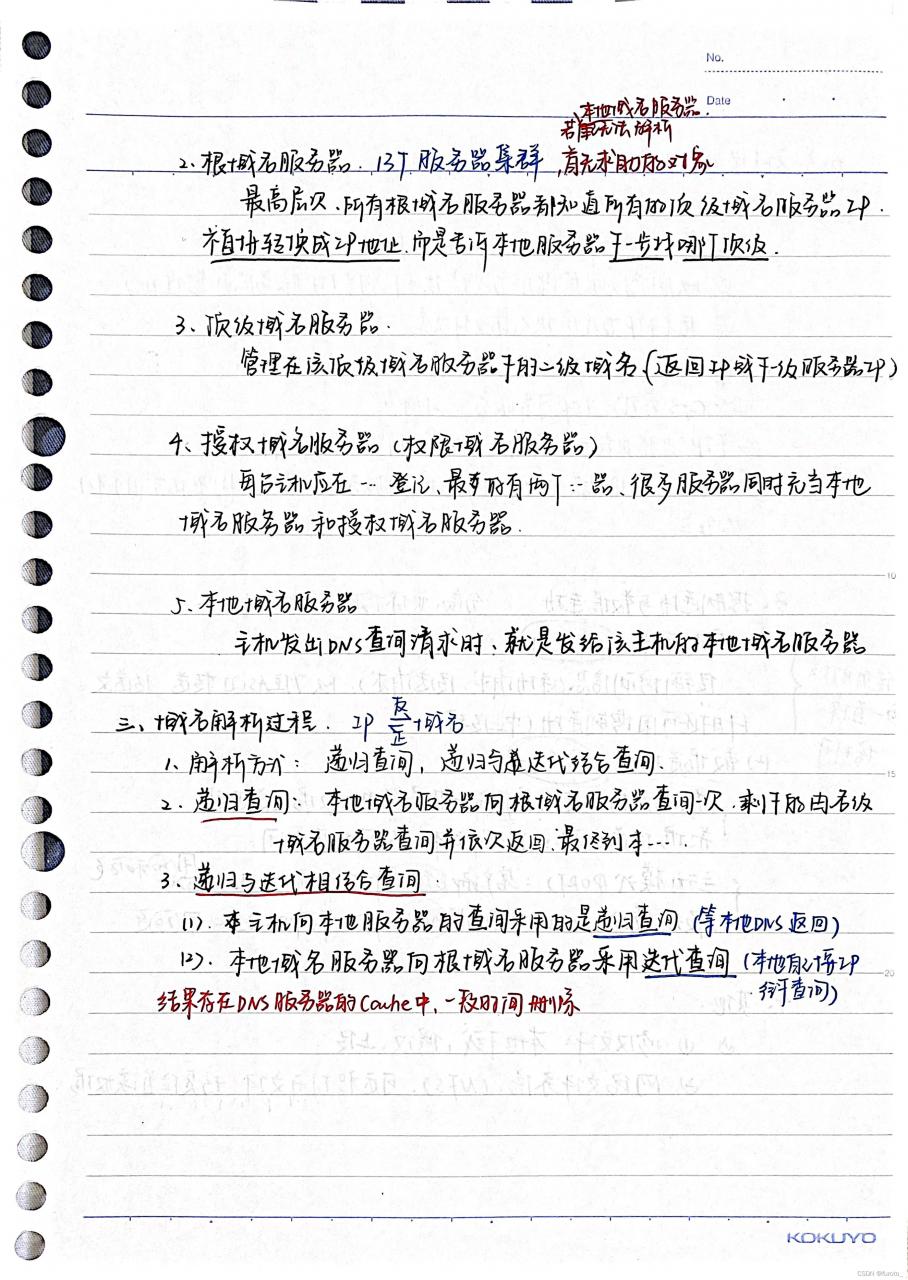 No.
Date
本地域名服务器.
若无法解析
2. 根域名服务器. 13个服务器集群, 首先求助的对象
最高层次、所有根域名服务器都知道所有的顶级域名服务器IP.
不直接转换成IP地址, 而是告诉本地服务器下一步找哪个顶级.
3、顶级域名服务器.
管理在该顶级域名服务器下的二级域名(返回IP或下一级服务器IP)
4、授权域名服务器(权限域名服务器)
每台主机应在…登记、最少有两个…器、很多服务器同时充当本地
域名服务器和授权域名服务器.
5、本地域名服务器
主机发出DNS查询请求时, 就是发给该主机的本地域名服务器
三、域名解析过程. IP 反 正 域名
1、解析方式: 递归查询, 递归与迭代结合查询.
2. 递归查询: 本地域名服务器向根域名服务器查询一次. 剩下的由各级
域名服务器查询并依次返回、最终到本….
3. 递归与迭代相结合查询
(1). 主机向本地服务器的查询采用的是递归查询 (等本地DNS返回)
(2). 本地域名服务器向根域名服务器采用迭代查询 (本地自己接IP
结果存在DNS服务器的Cache中, 一段时间删除
10
15
20
KOKUYO